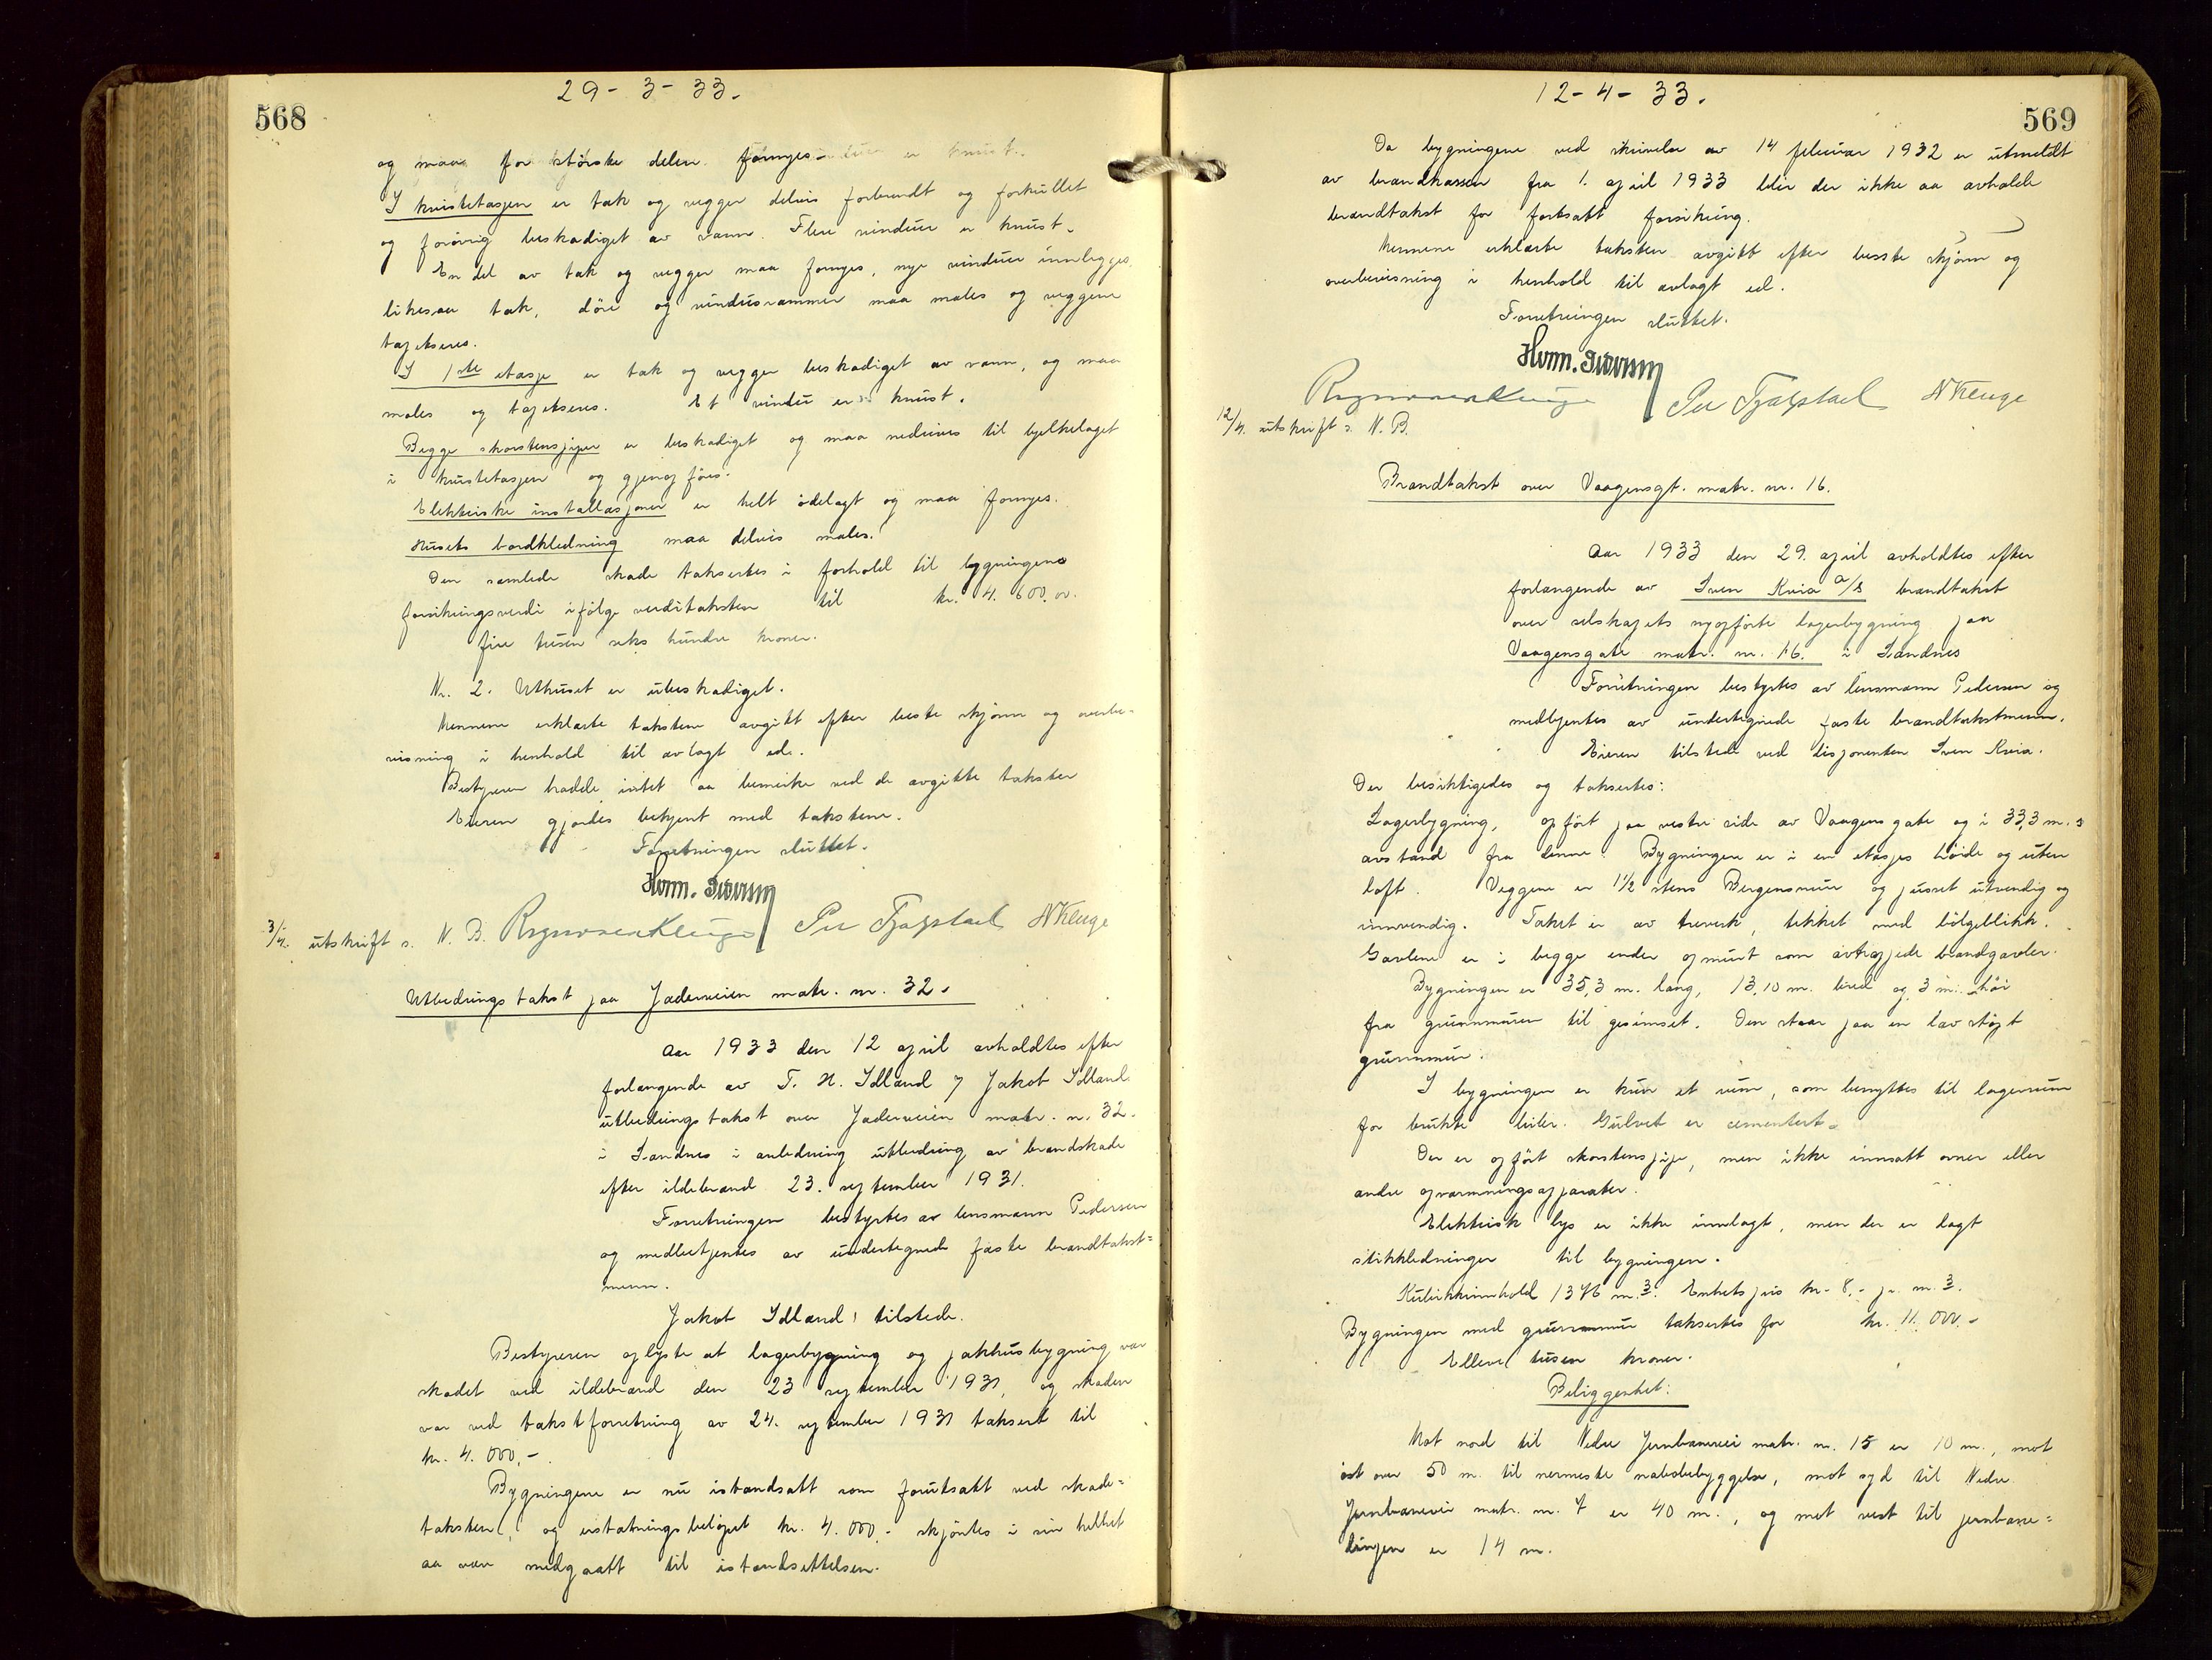 568
29-3-33.
og maa for störste delen fornyes
I kvistetasjen er tak og vegger delvis forbrendt og forkullet
og forövrig beskadiget av vann. Flere vinduer er knust.
En del av tak og vegger maa fornyes, nye vinduer innlegges
likesaa tak, döre og vindusrammer maa males og veggene
tapetseres.
I 1ste etasje er tak og vegger beskadiget av vann, og maa
males og tapetseres. Et vindu er knust.
Begge skorstenspiper er beskadiget og maa nedrives til bjelkelaget
i kvistetasjen og gjenopföres.
Elektriske installasjoner er helt ödelagt og maa fornyes.
Husets bordkledning maa delvis males.
Den samlede skade taksertes i forhold til bygningens
forsikringsverdi ifölge verditaksten til kr. 4.600.00.
fire tusen seks hundre kroner.
Nr. 2. Uthuset er ubeskadiget.
Mennene erklærte takstene avgitt efter beste skjönn og overbe-
visning i henhold til avlagt ed.
Bestyreren hadde intet aa bemerke ved de avgitte takster
Eieren gjordes bekjent med takstene.
Forretningen sluttet.
3/4. utskrift s. N. B.
Utbedringstakst paa Jaderveien matr. nr. 32.
Aar 1933 den 12 april avholdtes efter
forlangende av T. H. Idland & Jakob Idland
utbedringstakst over Jaderveien matr. nr. 32.
i Sandnes i anledning utbedring av brandskade
efter ildebrand 23. september 1931.
Forretningen bestyrtes av lensmann Pedersen
og medbetjentes av undertegnede faste brandtakst=
menn.
Jakob Idland tilstede.
Bestyreren oplyste at lagerbygning og pakkhusbygning var
skadet ved ildebrand den 23 september 1931, og skaden
var ved takstforretning av 24. september 1931 taksert til
kr. 4.000,-.
Bygningene er nu istandsatt som forutsatt ved skade=
taksten, og erstatningsbelöpet kr. 4.000,- skjöntes i sin helhet
aa være medgaatt til istandsettelsen.
569
12-4-33.
Da bygningene ved skrivelse av 14 februar 1932 er utmeldt
av brandkassen fra 1. april 1933 blir der ikke aa avholde
brandtakst for fortsatt forsikring.
Mennene erklærte taksten avgitt efter beste skjönn og
overbevisning i henhold til avlagt ed.
Forretningen sluttet.
12/4. utskrift s. N. B.
Brandtakst over Vaagensgt. matr. nr. 16.
Aar 1933 den 29. april avholdtes efter
forlangende av Sven Kvia a/s brandtakst
over selskapets nyopförte lagerbygning paa
Vaagensgate matr. nr. 16. i Sandnes
Forretningen bestyrtes av lensmann Pedersen og
medbetjentes av undertegnede faste brandtakstmenn.
Eieren tilstede ved disponenten Sven Kvia.
Der besiktigedes og taksertes:
Lagerbygning, opfört paa vestre side av Vaagensgate og i 33,3 m.s
avstand fra denne. Bygningen er i en etasjes höide og uten
loft. Veggene er 1½ stens Bergensmur og pusset utvendig og
innvendig. Taket er av treverk, tekket med bölgeblikk.
Gavlene er i begge ender opmurt som avtrappede brandgavler.
Bygningen er 35,3 m. lang, 13,10 m. bred og 3 m. höi
fra grunnmuren til gesimset. Den staar paa en lav stöpt
grunnmur.
I bygningen er kun et rum, som benyttes til lagerrum
for brukte biler. Gulvet er cementert.
Der er opfört skorstenspipe, men ikke innsatt ovner eller
andre opvarmningsapparater.
Elektrisk lys er ikke innlagt, men der er lagt
stikkledninger til bygningen.
Kubikkinnhold 1376 m.3. Enhetspris kr. 8,- pr. m.3.
Bygningen med grunnmur taksertes for kr. 11.000.-
Elleve tusen kroner.
Beliggenhet:
Mot nord til Nedre Jernbanevei matr. nr. 15 er 10 m., mot
öst over 50 m. til nermeste nabobebyggelse, mot syd til Nedre
Jernbanevei matr. nr. 7 er 40 m., og mot vest til jernbane=
linjen er 14 m.